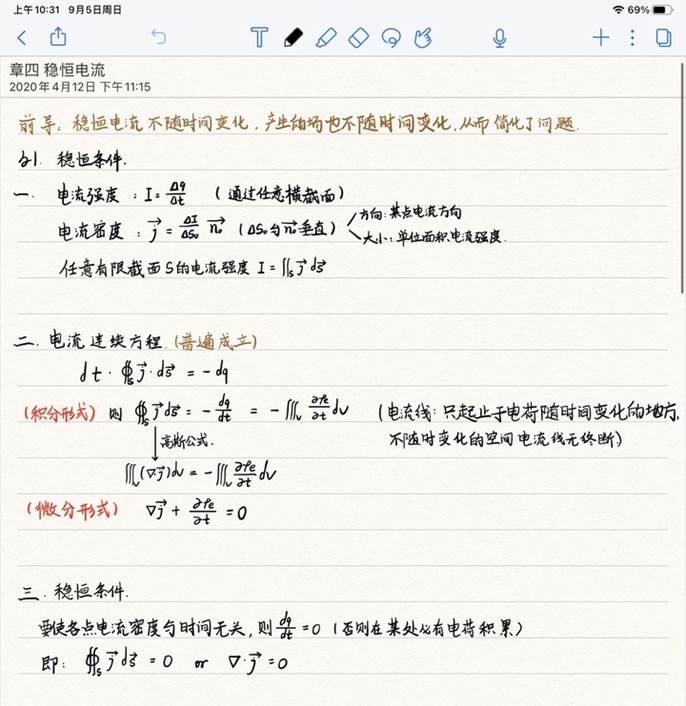 上午10:31 9月5日周日
69%
章四 稳恒电流
2020年4月12日 下午11:15
前导：稳恒电流不随时间变化，产生的场也不随时间变化，从而简化了问题.
§1. 稳恒条件.
一. 电流强度：I=Δq/Δt （通过任意横截面）
电流密度：j⃗=ΔI/ΔS₀ n⃗₀ （ΔS₀与n⃗₀垂直）
方向：某点电流方向
大小：单位面积电流强度.
任意有限截面S的电流强度 I=∬ₛ j⃗ ds⃗
二. 电流连续方程.(普遍成立)
dt·∯ₛ j⃗·ds⃗ = -dq
(积分形式) 则 ∯ₛ j⃗ ds⃗ = -dq/dt = -∭ᵥ ∂ρe/∂t dv （电流线：只起止于电荷随时间变化的地方，
不随时变化的空间电流线无终断）
↓高斯公式.
∭ᵥ(∇j⃗)dv = -∭ᵥ ∂ρe/∂t dv
(微分形式) ∇j⃗ + ∂ρe/∂t = 0
三. 稳恒条件.
要使各点电流密度与时间无关，则dq/dt=0（否则在某处必有电荷积累）
即：∯ₛ j⃗ ds⃗ = 0 or ∇·j⃗ = 0